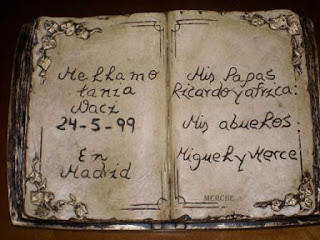 Me llamo
tania
Naci
24-5-99
En
Madrid
Mis Papas
Ricardo y africa:
Mis abuelos:
Miguel y Merce
MERCHE